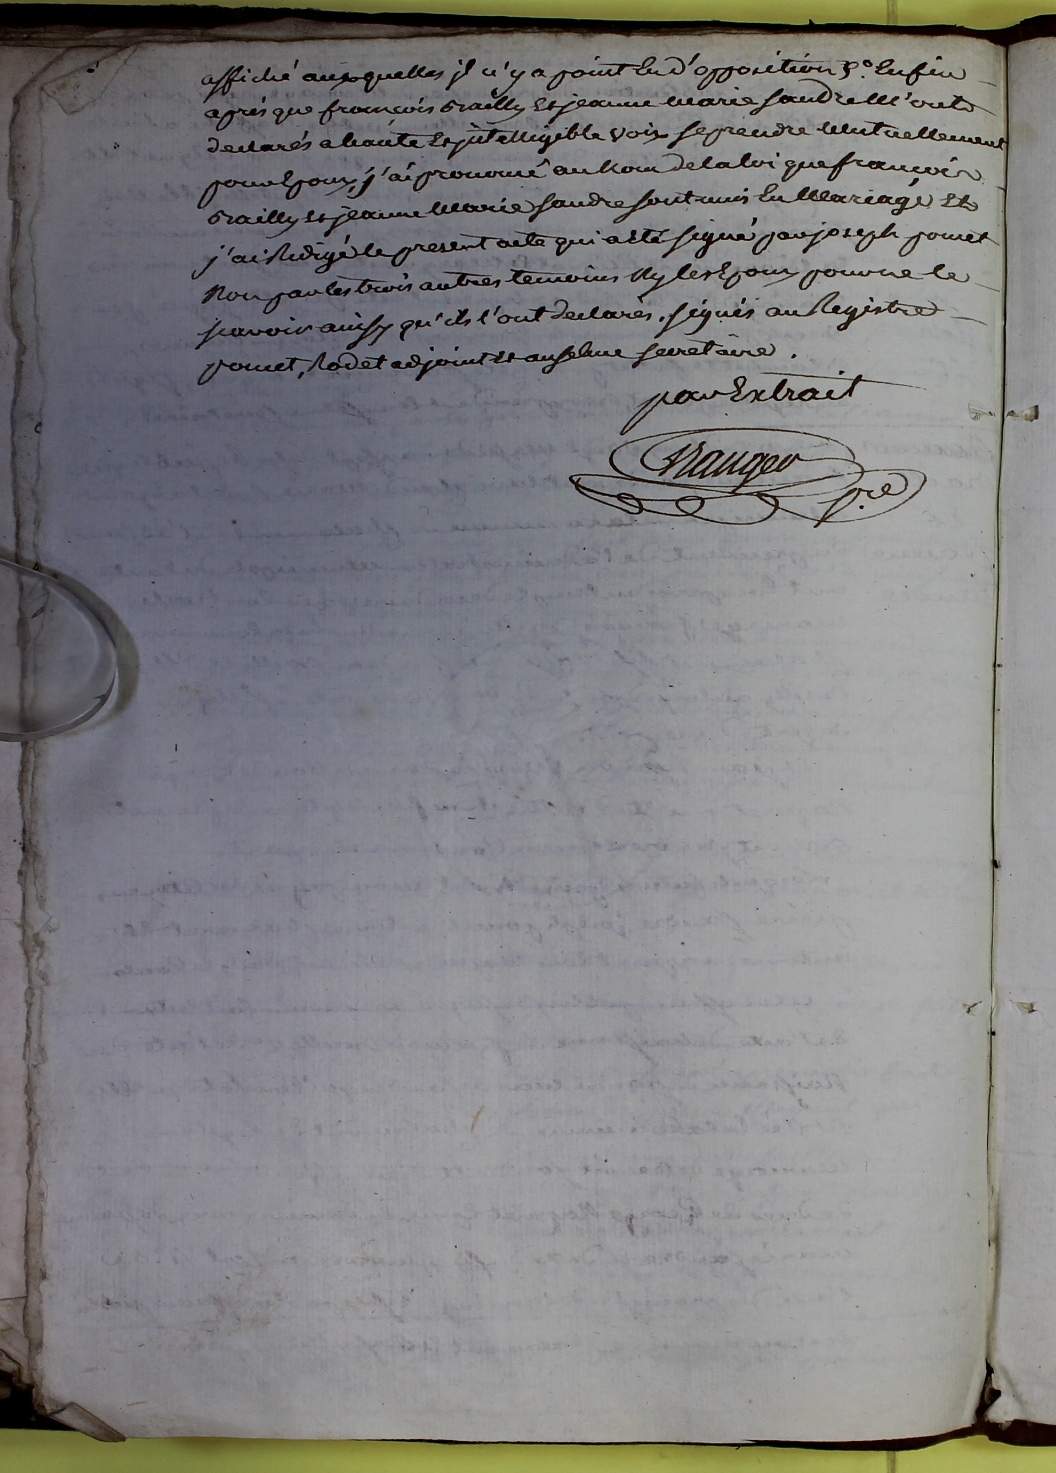 affiché auxquelles jl n'y a point Eu d'opposition 5°. Enfin
aprés que francois Brailly Et jeanne Marie Saudre M'ont
declarés a haute Et jntelligible voix se prendre Mutuellement
pour Epoux, j'ai prononcé au Nom de la loi que francois
Brailly et jeanne Marie Saudre sont unis En Mariage Et
j'ai Redigé le present acte qui a eté signé par joseph pomet
Non par les trois autres temoins Ny les Epoux pour ne le
scavoir ainsy qu'ils l'ont declarés. signés au Registre
pomet, Rodet adjoint et anselme secretaire.
par Extrait